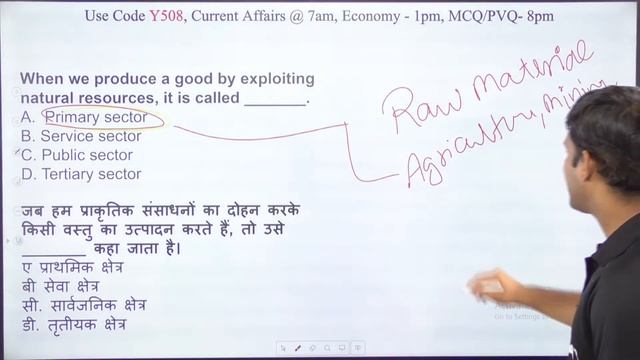 Use Code Y508, Current Affairs @ 7am, Economy - 1pm, MCQ/PVQ- 8pm
When we produce a good by exploiting
natural resources, it is called _______.
A. Primary sector
B. Service sector
C. Public sector
D. Tertiary sector
Raw Material
Agriculture, Mining,
जब हम प्राकृतिक संसाधनों का दोहन करके
किसी वस्तु का उत्पादन करते हैं, तो उसे
_______ कहा जाता है।
ए प्राथमिक क्षेत्र
बी सेवा क्षेत्र
सी. सार्वजनिक क्षेत्र
डी. तृतीयक क्षेत्र
Go to Settings